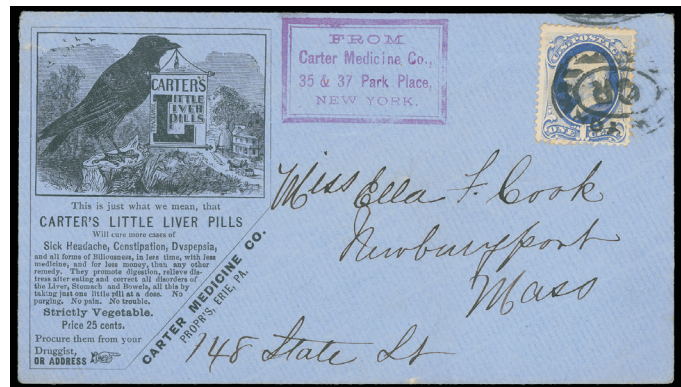 CARTER'S
LITTLE
LIVER
PILLS
This is just what we mean, that
CARTER'S LITTLE LIVER PILLS
Will cure more cases of
Sick Headache, Constipation, Dyspepsia,
and all forms of Biliousness, in less time, with less
medicine, and for less money, than any other
remedy. They promote digestion, relieve dis-
tress after eating and correct all disorders of
the Liver, Stomach and Bowels, all this by
taking just one little pill at a dose. No
purging. No pain. No trouble.
Strictly Vegetable.
Price 25 cents.
Procure them from your
Druggist,
OR ADDRESS
CARTER MEDICINE CO.
PROPR'S, ERIE, PA.
FROM
Carter Medicine Co.,
35 & 37 Park Place,
NEW YORK.
ONE
Miss Ella F. Cook
Newburyport
Mass
148 State St